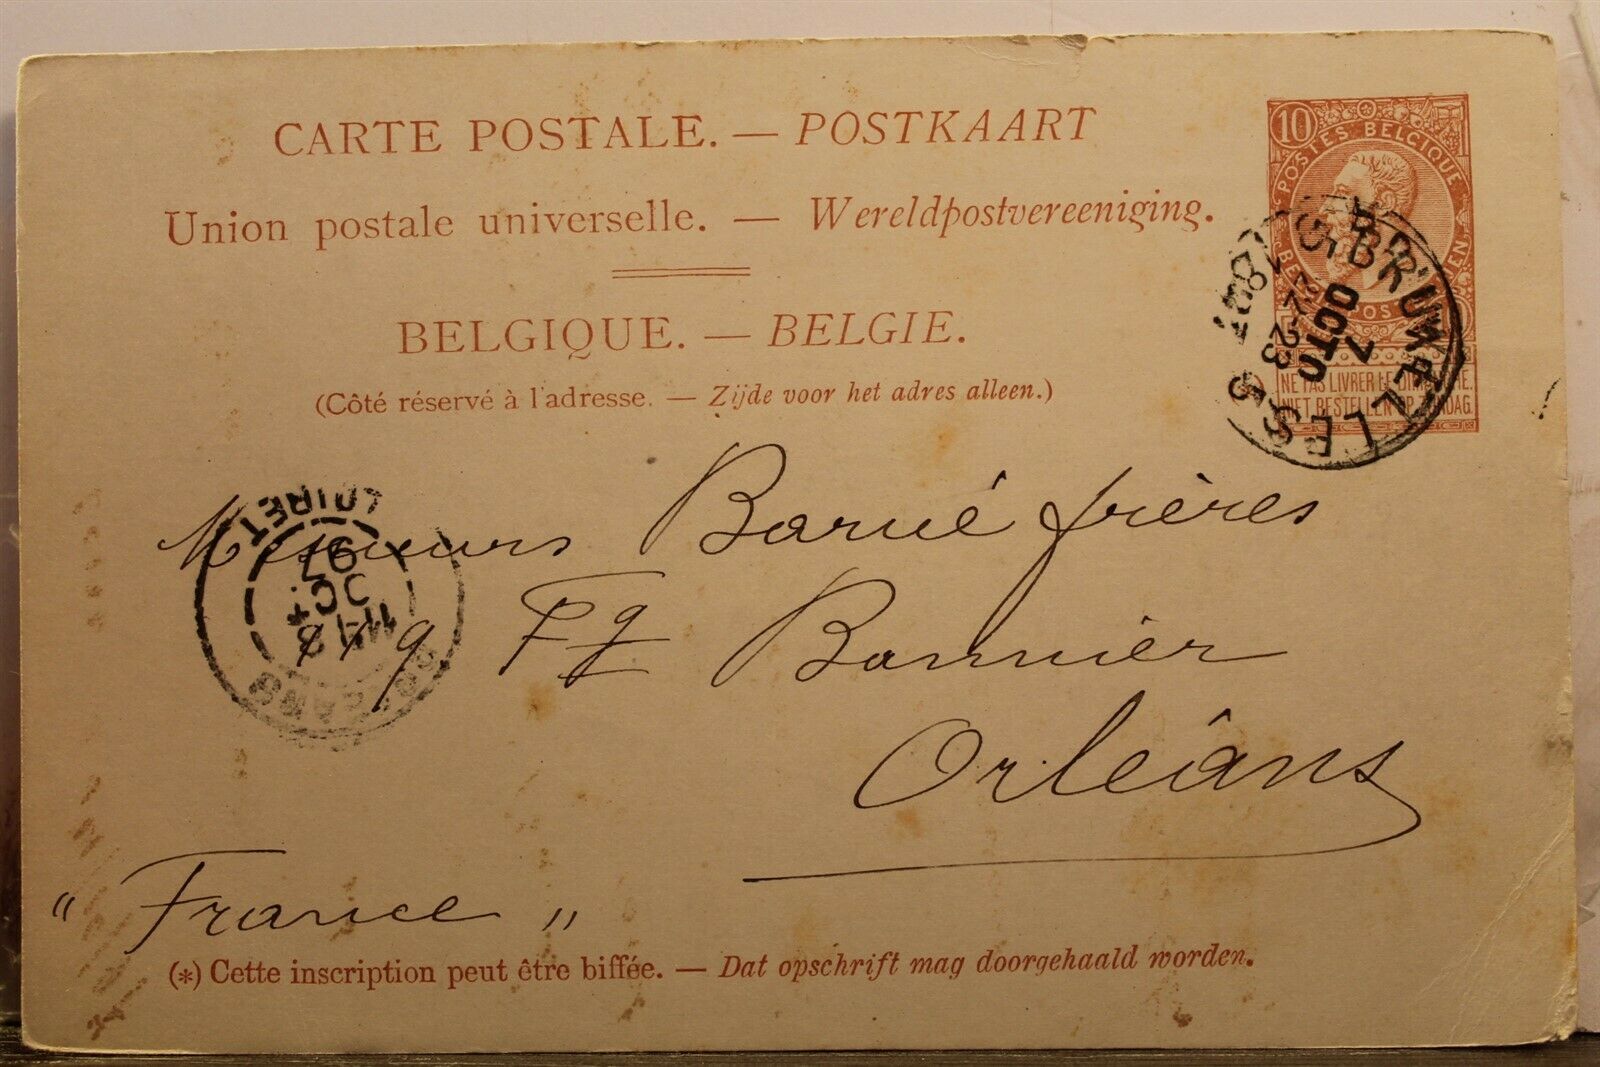 CARTE POSTALE. — POSTKAART
Union postale universelle. — Wereldpostvereeniging.
BELGIQUE. — BELGIE.
(Côté réservé à l'adresse. — Zijde voor het adres alleen.)
10
POSTES BELGIQUE
NE PAS LIVRER LE DIMANCHE.
NIET BESTELLEN OP ZONDAG.
BRUXELLES 5
7
OCTO
1897
LOIRET
97
OCT
8
Messieurs Barué frères
9 Fg Bannier
Orléans
" France "
(*) Cette inscription peut être biffée. — Dat opschrift mag doorgehaald worden.